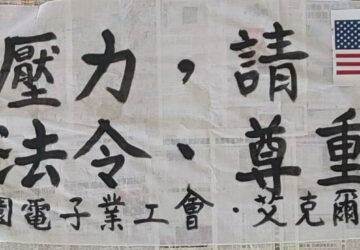 壓力，請
法令、尊重
園電子業工會．艾克爾